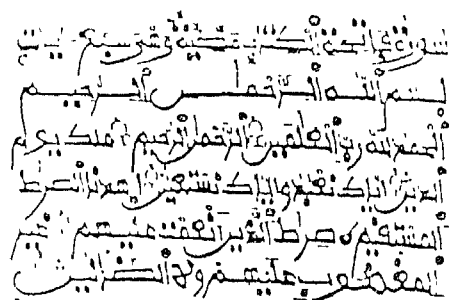 سورة فاتحة الكتاب مكية سبع ايت
بسم الله الرحمن الرحيم
الحمد لله رب العلمين الرحمن الرحيم ملك يوم
الدين اياك نعبد واياك نستعين اهدنا الصرط
المستقيم صرط الذين انعمت عليهم غير
المغضوب عليهم ولا الضالين